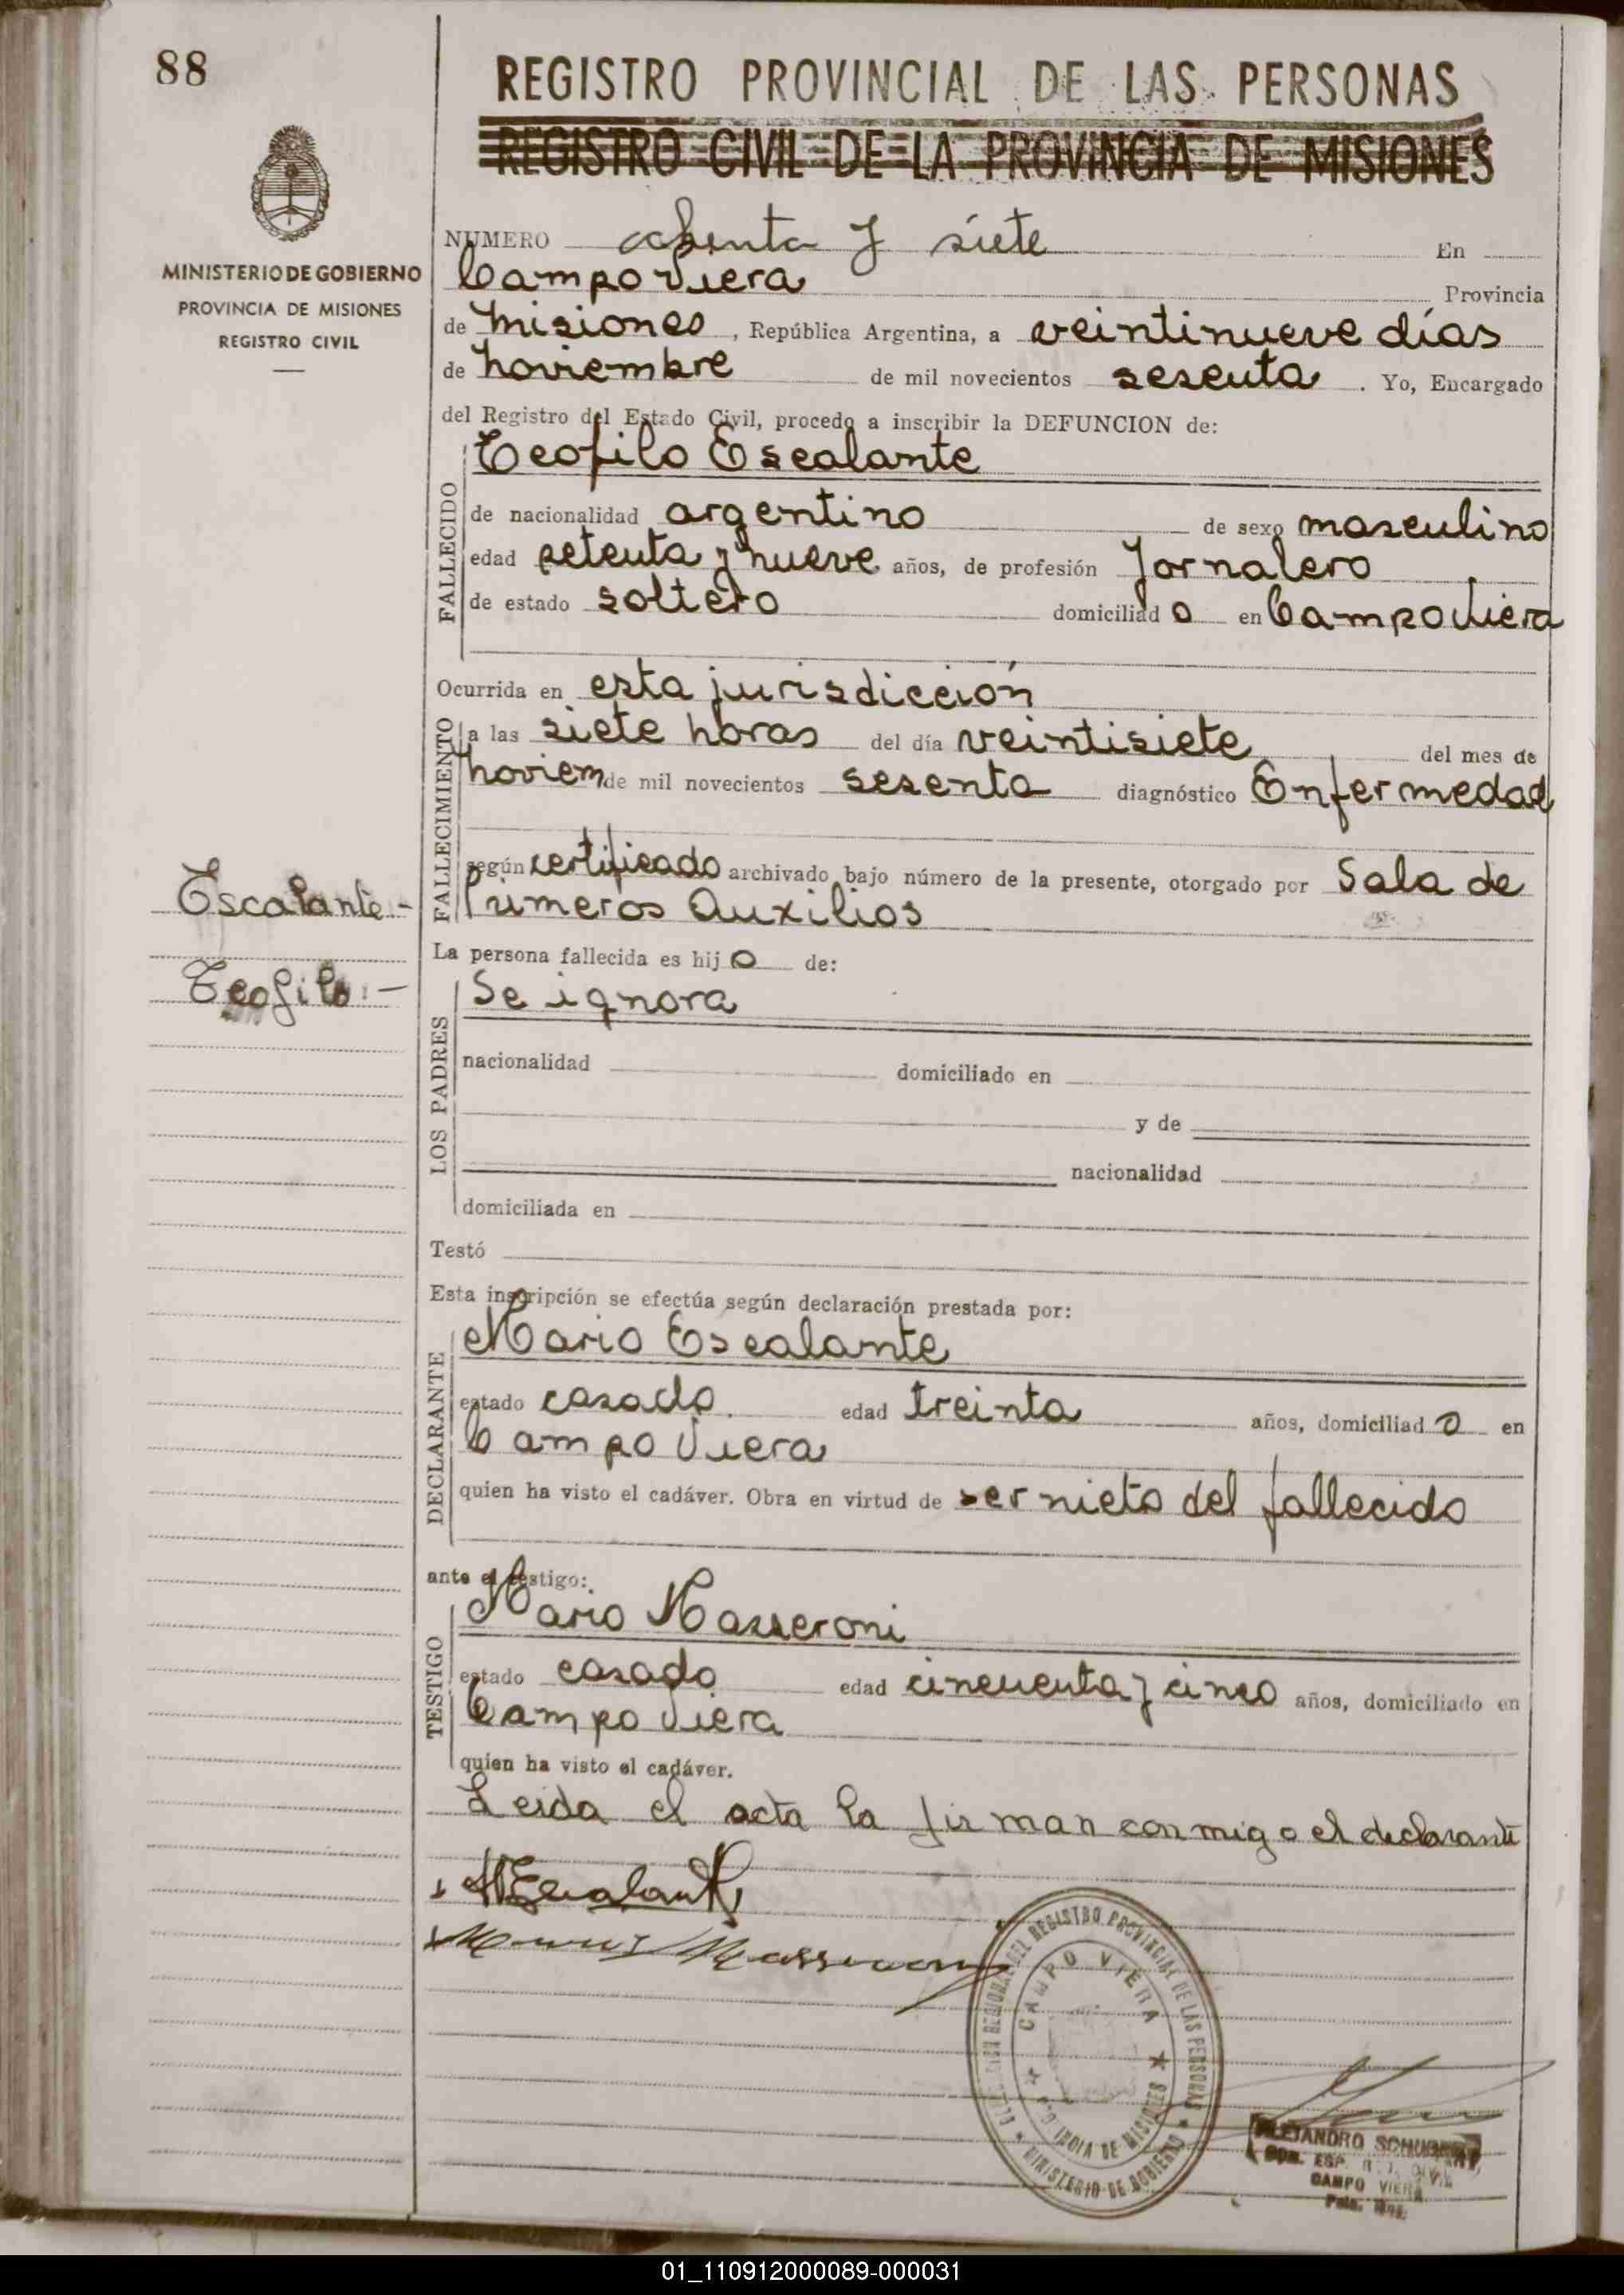 88
REGISTRO PROVINCIAL DE LAS PERSONAS
REGISTRO CIVIL DE LA PROVINCIA DE MISIONES
MINISTERIO DE GOBIERNO
PROVINCIA DE MISIONES
REGISTRO CIVIL
NUMERO ochenta y siete En
Campo Viera Provincia
de Misiones, República Argentina, a veintinueve días
de noviembre de mil novecientos sesenta. Yo, Encargado
del Registro del Estado Civil, procedo a inscribir la DEFUNCION de:
FALLECIDO
Teofilo Escalante
de nacionalidad argentino de sexo masculino
edad setenta y nueve años, de profesión Jornalero
de estado soltero domiciliado en Campo Viera
Ocurrida en esta jurisdicción
FALLECIMIENTO
a las siete horas del día veintisiete del mes de
noviem de mil novecientos sesenta diagnóstico Enfermedad
según certificado archivado bajo número de la presente, otorgado por Sala de
Primeros Auxilios
Escalante.-
Teofilo.-
La persona fallecida es hijo de:
LOS PADRES
Se ignora
nacionalidad domiciliado en
y de
nacionalidad
domiciliada en
Testó
Esta inscripción se efectúa según declaración prestada por:
DECLARANTE
Mario Escalante
estado casado. edad treinta años, domiciliado en
Campo Viera
quien ha visto el cadáver. Obra en virtud de ser nieto del fallecido
ante el testigo:
TESTIGO
Mario Masseroni
estado casado edad cincuenta y cinco años, domiciliado en
Campo Viera
quien ha visto el cadáver.
Leida el acta la firman conmigo el declarante
MEscalante
Masseroni
REGIONAL DEL REGISTRO PROVINCIAL DE LAS PERSONAS
CAMPO VIERA
PROVINCIA DE MISIONES
MINISTERIO DE GOBIERNO
ALEJANDRO
CAMPO VIERA
01_110912000089-000031